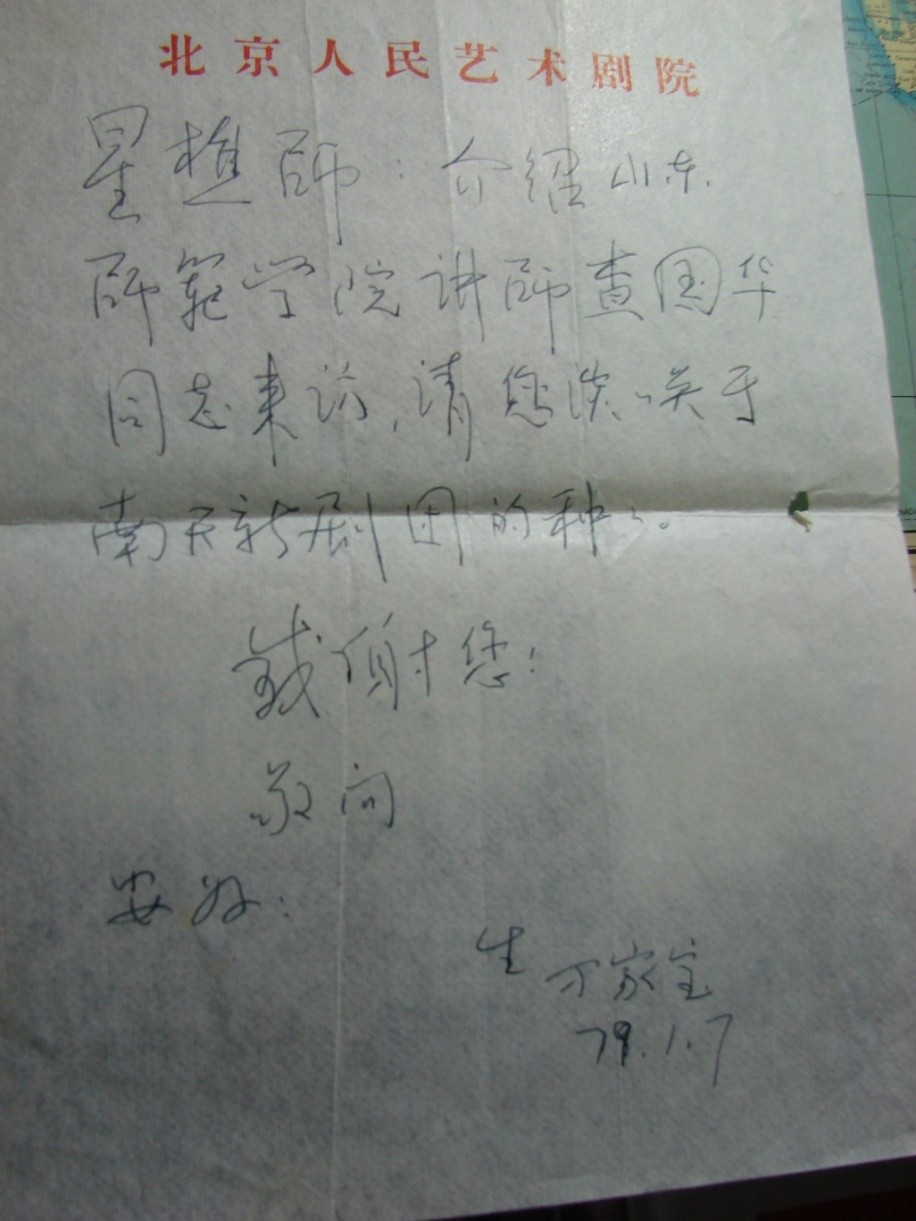 北京人民艺术剧院
星樵師：介绍山东
師範学院讲師查国华
同志来访，请您谈谈关于
南开新剧团的种种。
感谢您！
敬问
安好！
生 万家宝
79.1.7